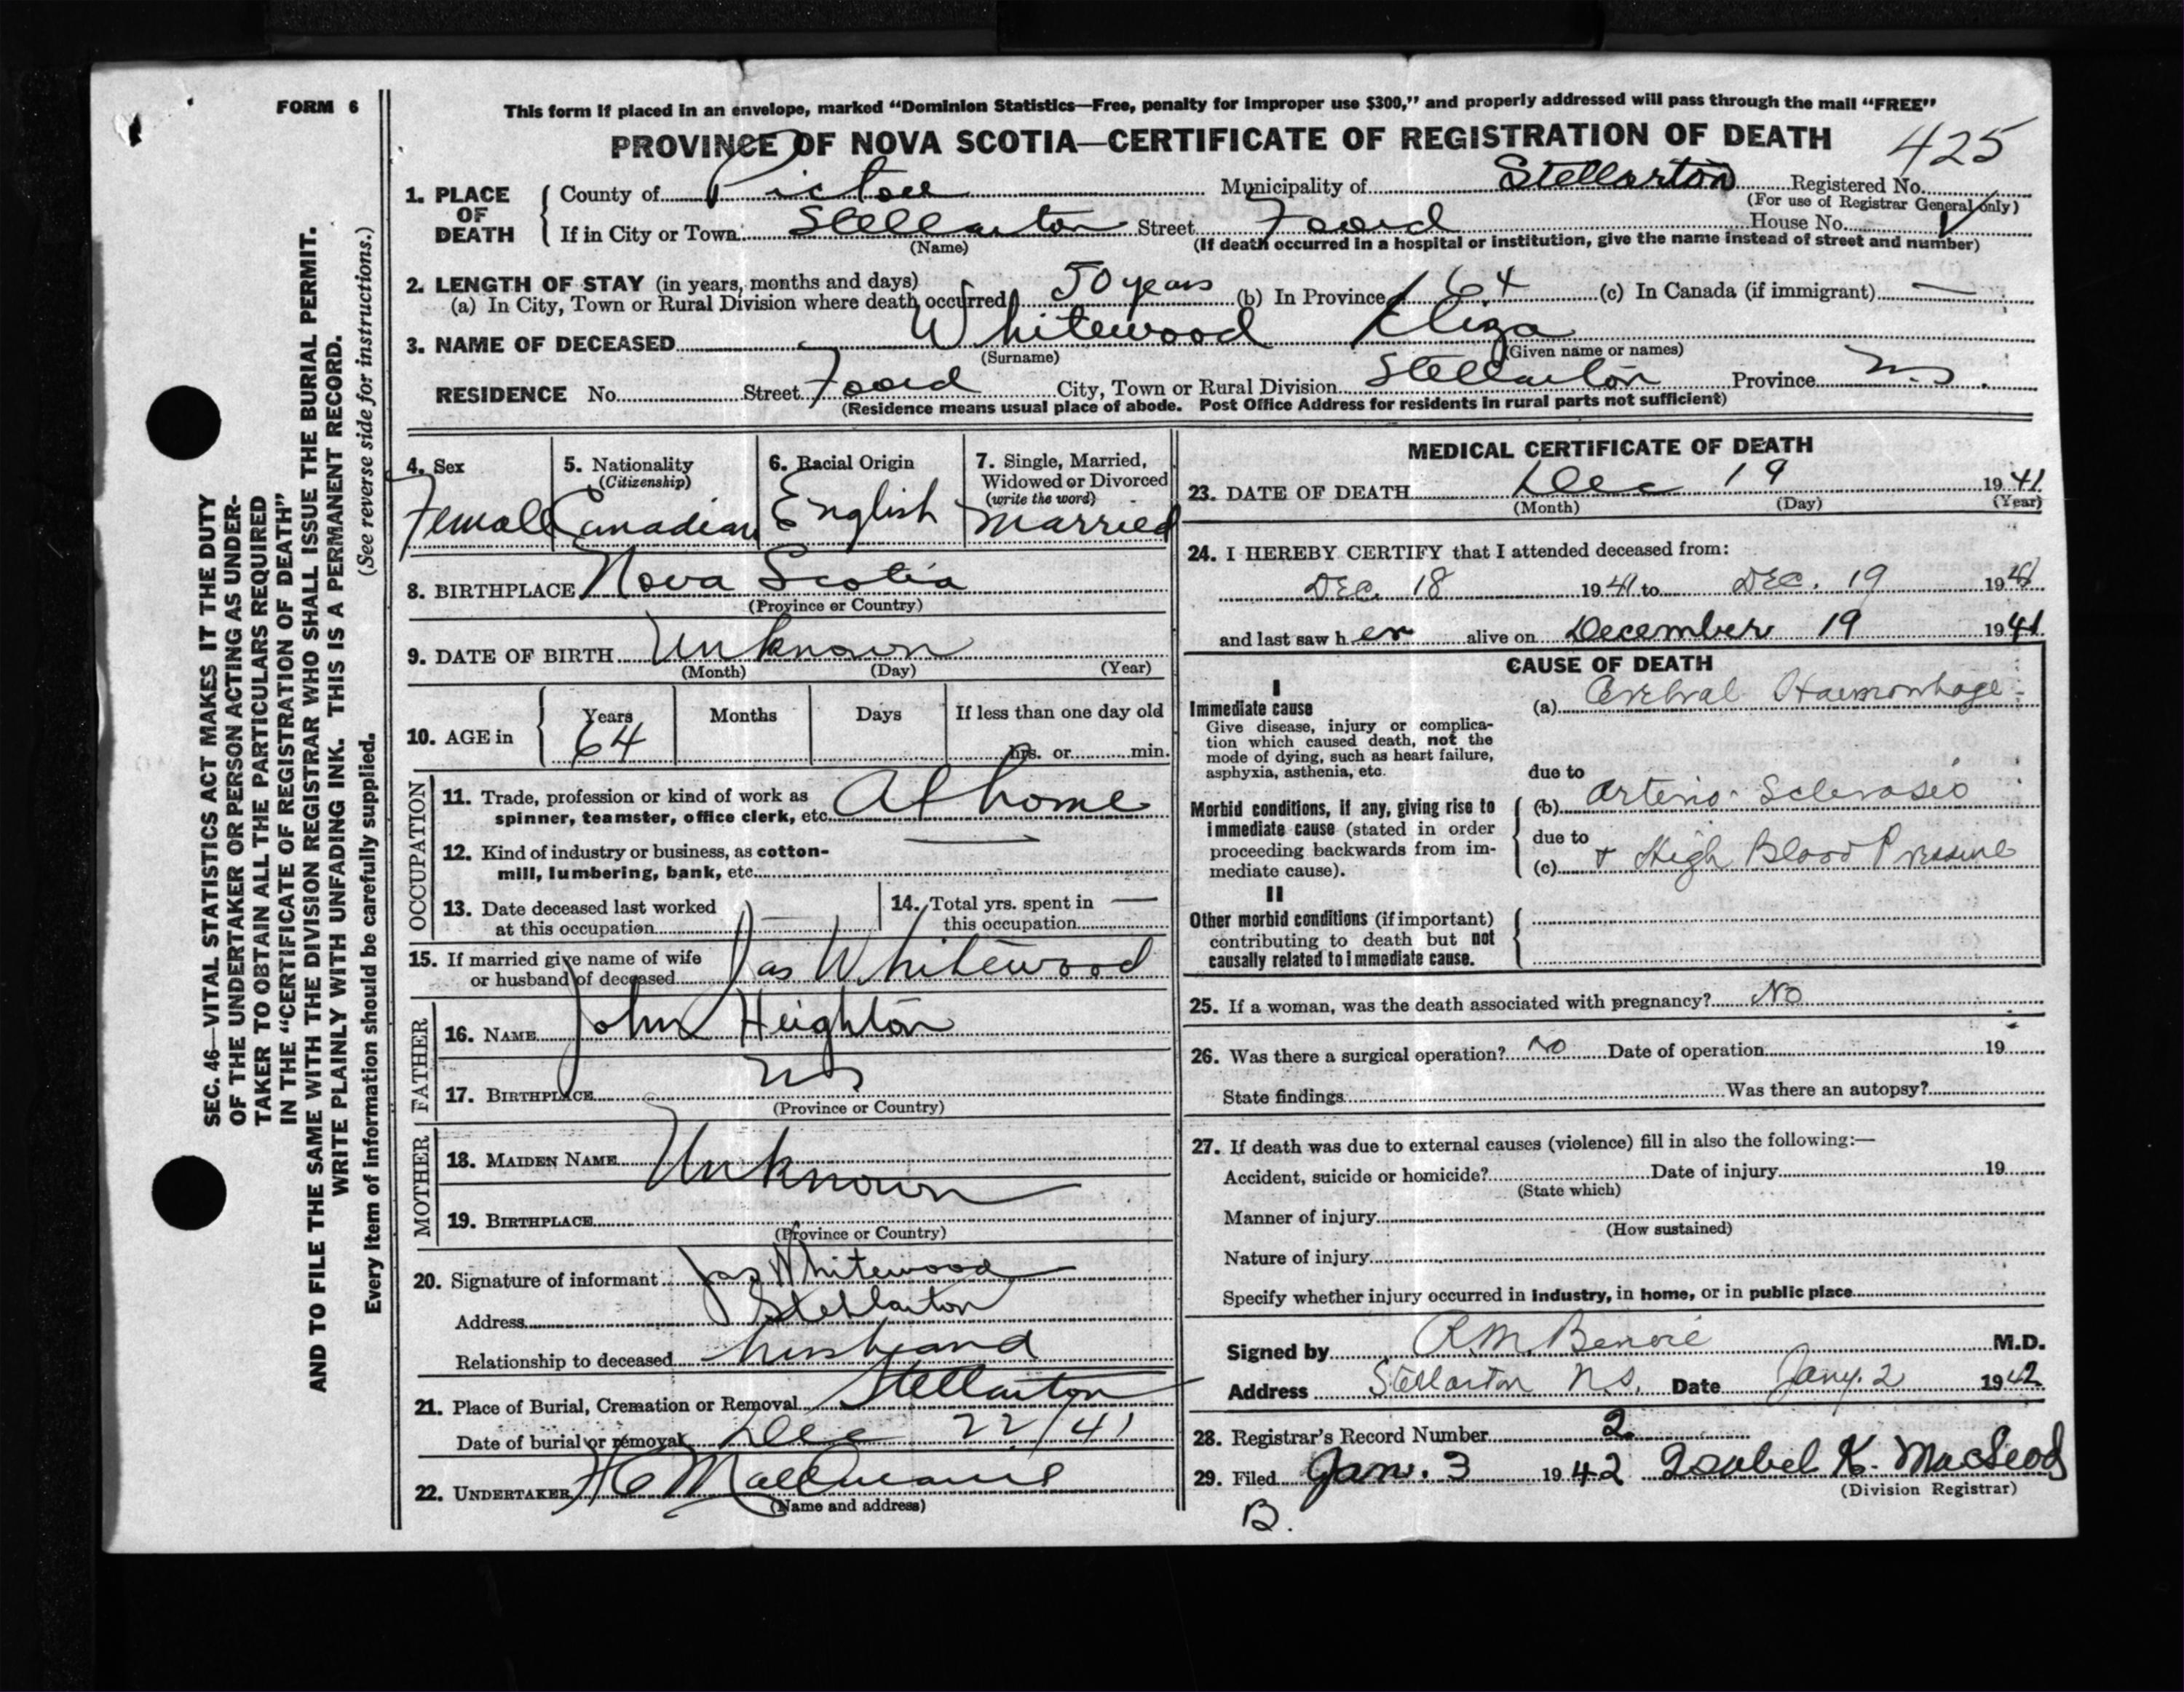 FORM 6
This form if placed in an envelope, marked “Dominion Statistics—Free, penalty for improper use $300,” and properly addressed will pass through the mail “FREE”
PROVINCE OF NOVA SCOTIA—CERTIFICATE OF REGISTRATION OF DEATH
425
1. PLACE OF DEATH
County of Pictou Municipality of Stellarton Registered No.
(For use of Registrar General only)
If in City or Town Stellarton Street Foord House No.
(Name) (If death occurred in a hospital or institution, give the name instead of street and number)
2. LENGTH OF STAY (in years, months and days)
(a) In City, Town or Rural Division where death occurred 50 years (b) In Province 64 (c) In Canada (if immigrant) —
3. NAME OF DECEASED Whitewood Eliza
(Surname) (Given name or names)
RESIDENCE No. Street Foord City, Town or Rural Division Stellarton Province N.S.
(Residence means usual place of abode. Post Office Address for residents in rural parts not sufficient)
4. Sex
Female
5. Nationality
(Citizenship)
Canadian
6. Racial Origin
English
7. Single, Married,
Widowed or Divorced
(write the word)
Married
8. BIRTHPLACE Nova Scotia
(Province or Country)
9. DATE OF BIRTH Unknown
(Month) (Day) (Year)
10. AGE in
Years Months Days If less than one day old
64 hrs. or min.
OCCUPATION
11. Trade, profession or kind of work as
spinner, teamster, office clerk, etc. At home
12. Kind of industry or business, as cotton-
mill, lumbering, bank, etc. —
13. Date deceased last worked
at this occupation —
14. Total yrs. spent in —
this occupation
15. If married give name of wife
or husband of deceased Jas Whitewood
FATHER
16. NAME John Heighton
17. BIRTHPLACE N.S.
(Province or Country)
MOTHER
18. MAIDEN NAME Unknown
19. BIRTHPLACE
(Province or Country)
20. Signature of informant Jas Whitewood
Address Stellarton
Relationship to deceased husband
21. Place of Burial, Cremation or Removal Stellarton
Date of burial or removal Dec 22/41
22. UNDERTAKER
(Name and address)
MEDICAL CERTIFICATE OF DEATH
23. DATE OF DEATH Dec 19 1941
(Month) (Day) (Year)
24. I HEREBY CERTIFY that I attended deceased from:
DEC. 18 1941 to DEC. 19 1941
and last saw her alive on December 19 1941
CAUSE OF DEATH
I
Immediate cause
Give disease, injury or complica-
tion which caused death, not the
mode of dying, such as heart failure,
asphyxia, asthenia, etc.
(a) Cerebral Haemorrhage
due to
Morbid conditions, if any, giving rise to
immediate cause (stated in order
proceeding backwards from im-
mediate cause).
(b) Arterio-Sclerosis
due to
(c) + High Blood Pressure
II
Other morbid conditions (if important)
contributing to death but not
causally related to immediate cause.
25. If a woman, was the death associated with pregnancy? No
26. Was there a surgical operation? No Date of operation 19
State findings Was there an autopsy?
27. If death was due to external causes (violence) fill in also the following:—
Accident, suicide or homicide? Date of injury 19
(State which)
Manner of injury
(How sustained)
Nature of injury
Specify whether injury occurred in industry, in home, or in public place
Signed by R.M. Benvie M.D.
Address Stellarton N.S. Date Jany. 2 1942
28. Registrar's Record Number 2.
29. Filed Jan. 3 1942 Isabel K. MacLeod
(Division Registrar)
B.
SEC. 46—VITAL STATISTICS ACT MAKES IT THE DUTY
OF THE UNDERTAKER OR PERSON ACTING AS UNDER-
TAKER TO OBTAIN ALL THE PARTICULARS REQUIRED
IN THE “CERTIFICATE OF REGISTRATION OF DEATH”
AND TO FILE THE SAME WITH THE DIVISION REGISTRAR WHO SHALL ISSUE THE BURIAL PERMIT.
WRITE PLAINLY WITH UNFADING INK. THIS IS A PERMANENT RECORD.
(See reverse side for instructions.)
Every item of information should be carefully supplied.